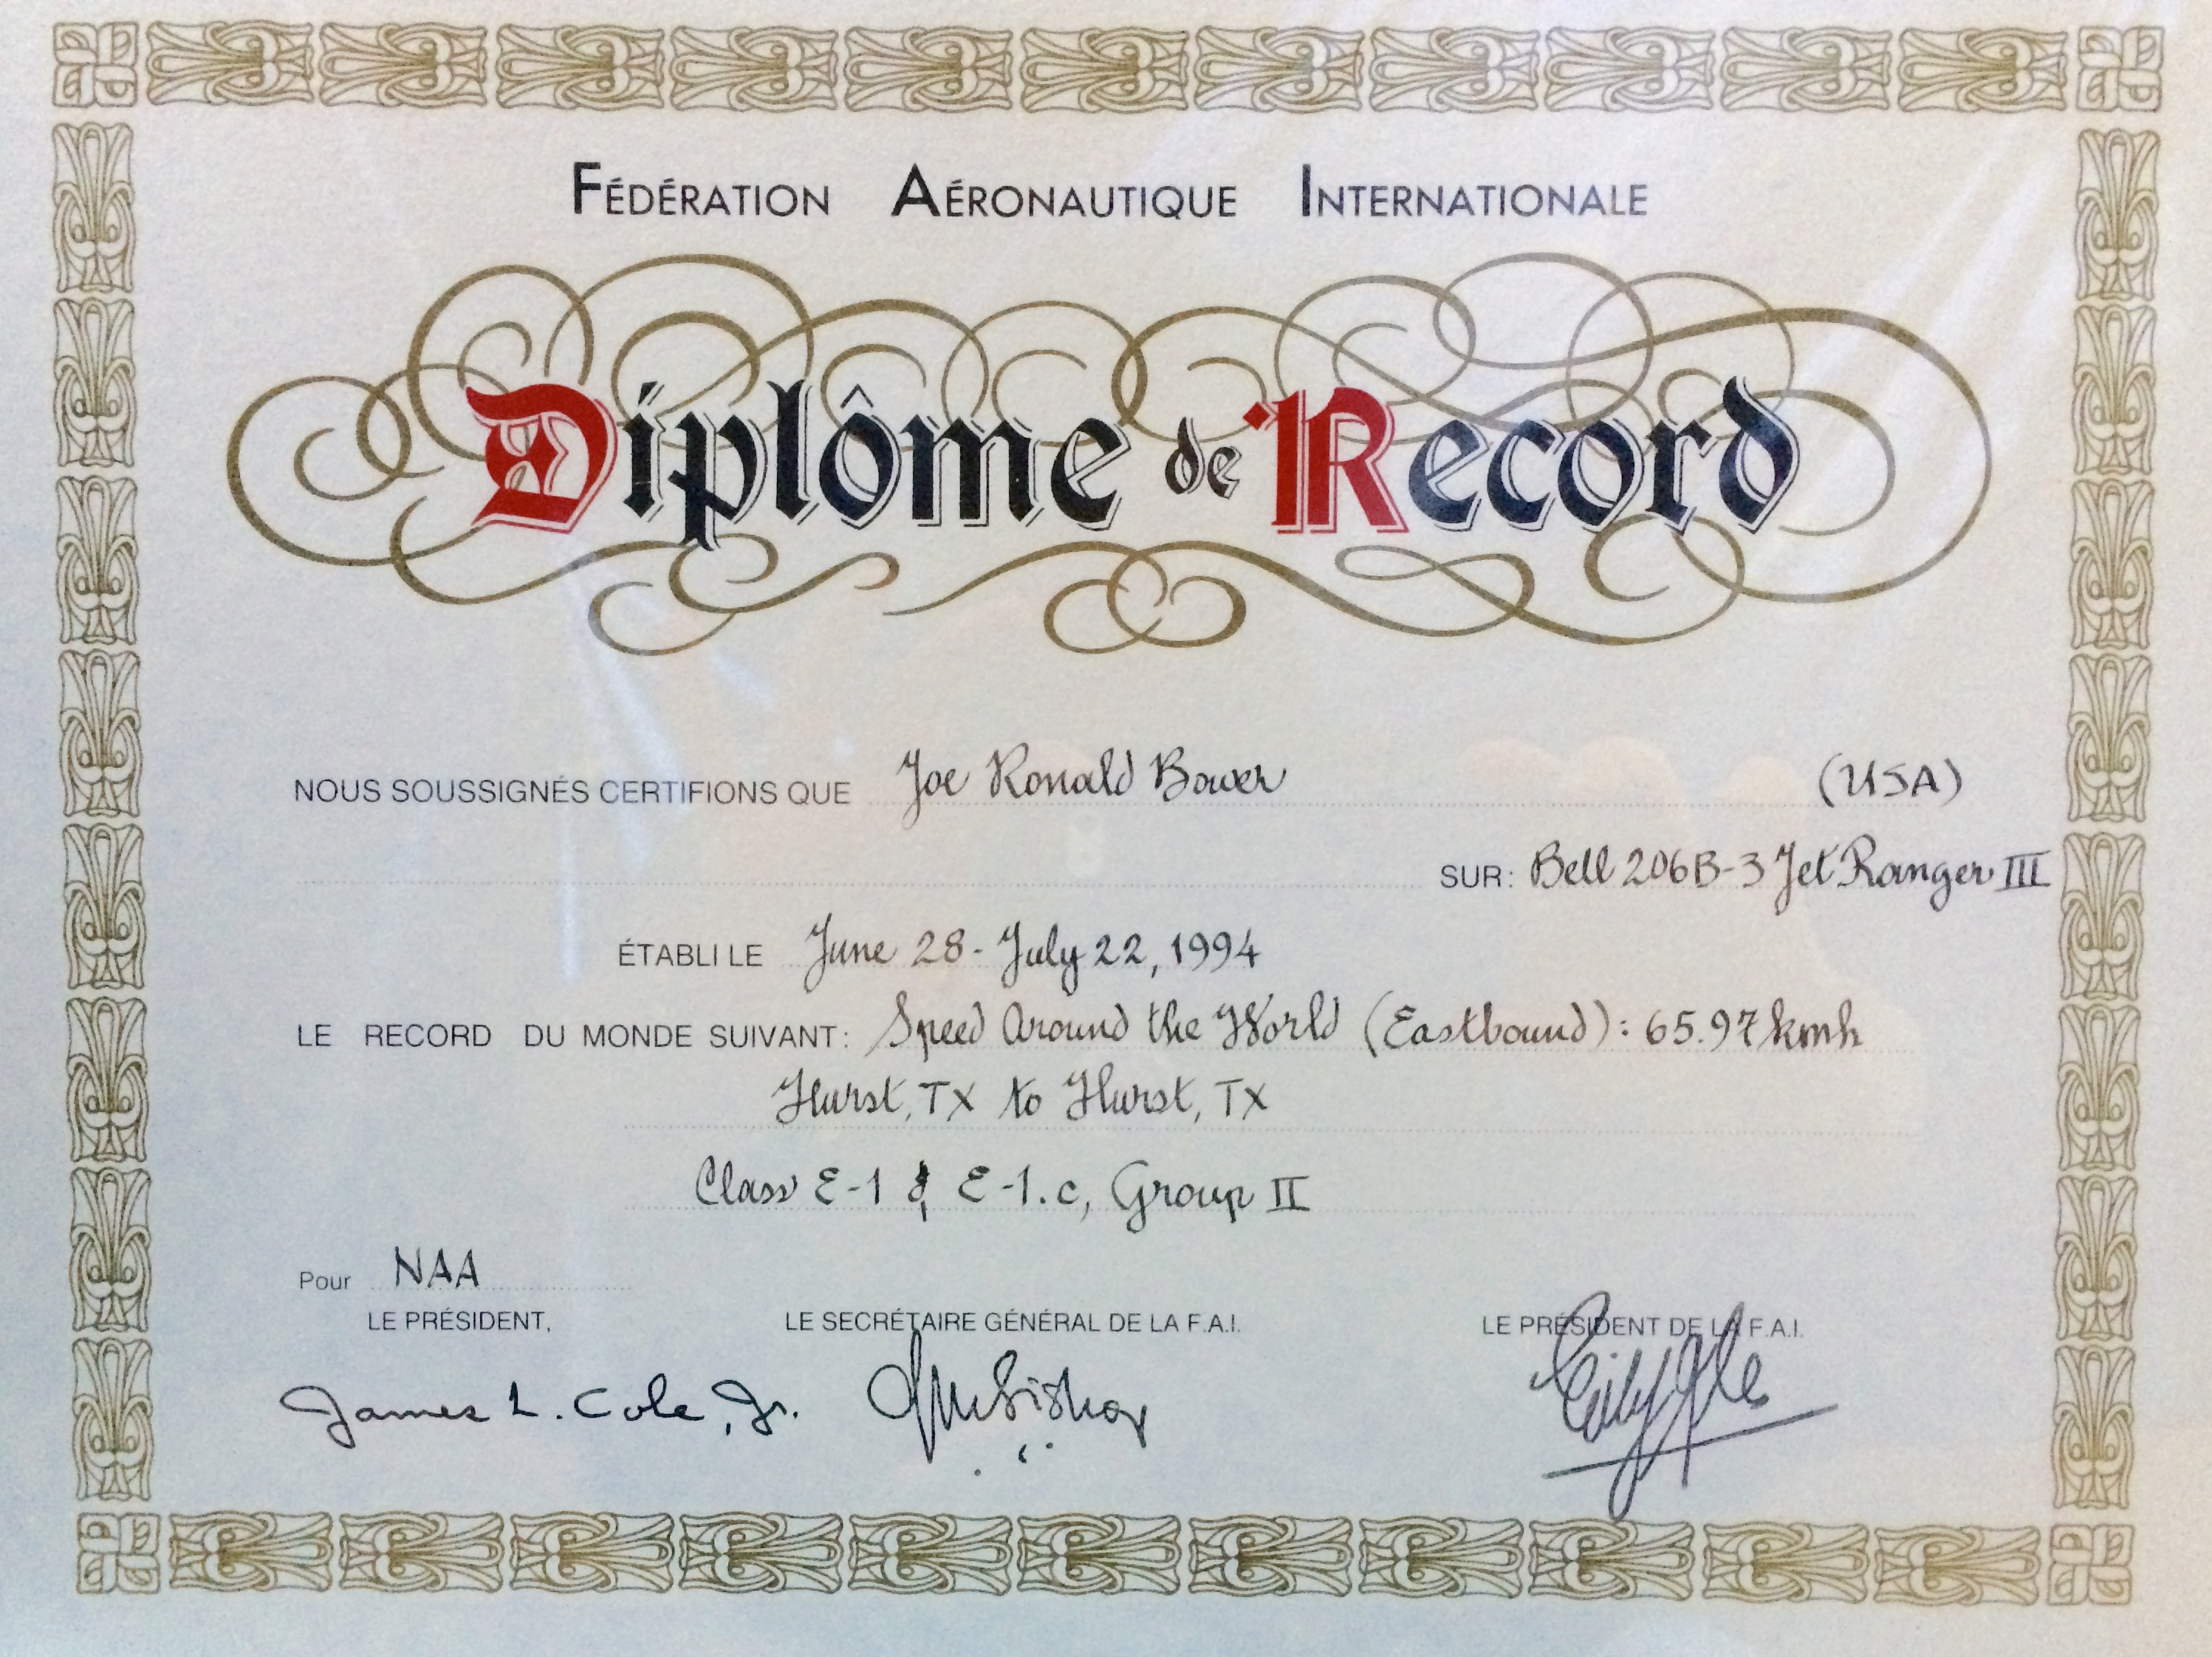 FÉDÉRATION AÉRONAUTIQUE INTERNATIONALE
Diplôme de Record
NOUS SOUSSIGNÉS CERTIFIONS QUE Joe Ronald Bower (USA)
SUR: Bell 206B-3 Jet Ranger III
ÉTABLI LE June 28 - July 22, 1994
LE RECORD DU MONDE SUIVANT: Speed Around the World (Eastbound): 65.97 kmh
Hurst, TX to Hurst, TX
Class E-1 & E-1.c, Group II
Pour NAA
LE PRÉSIDENT, LE SECRÉTAIRE GÉNÉRAL DE LA F.A.I. LE PRÉSIDENT DE LA F.A.I.
James L. Cole, Jr.